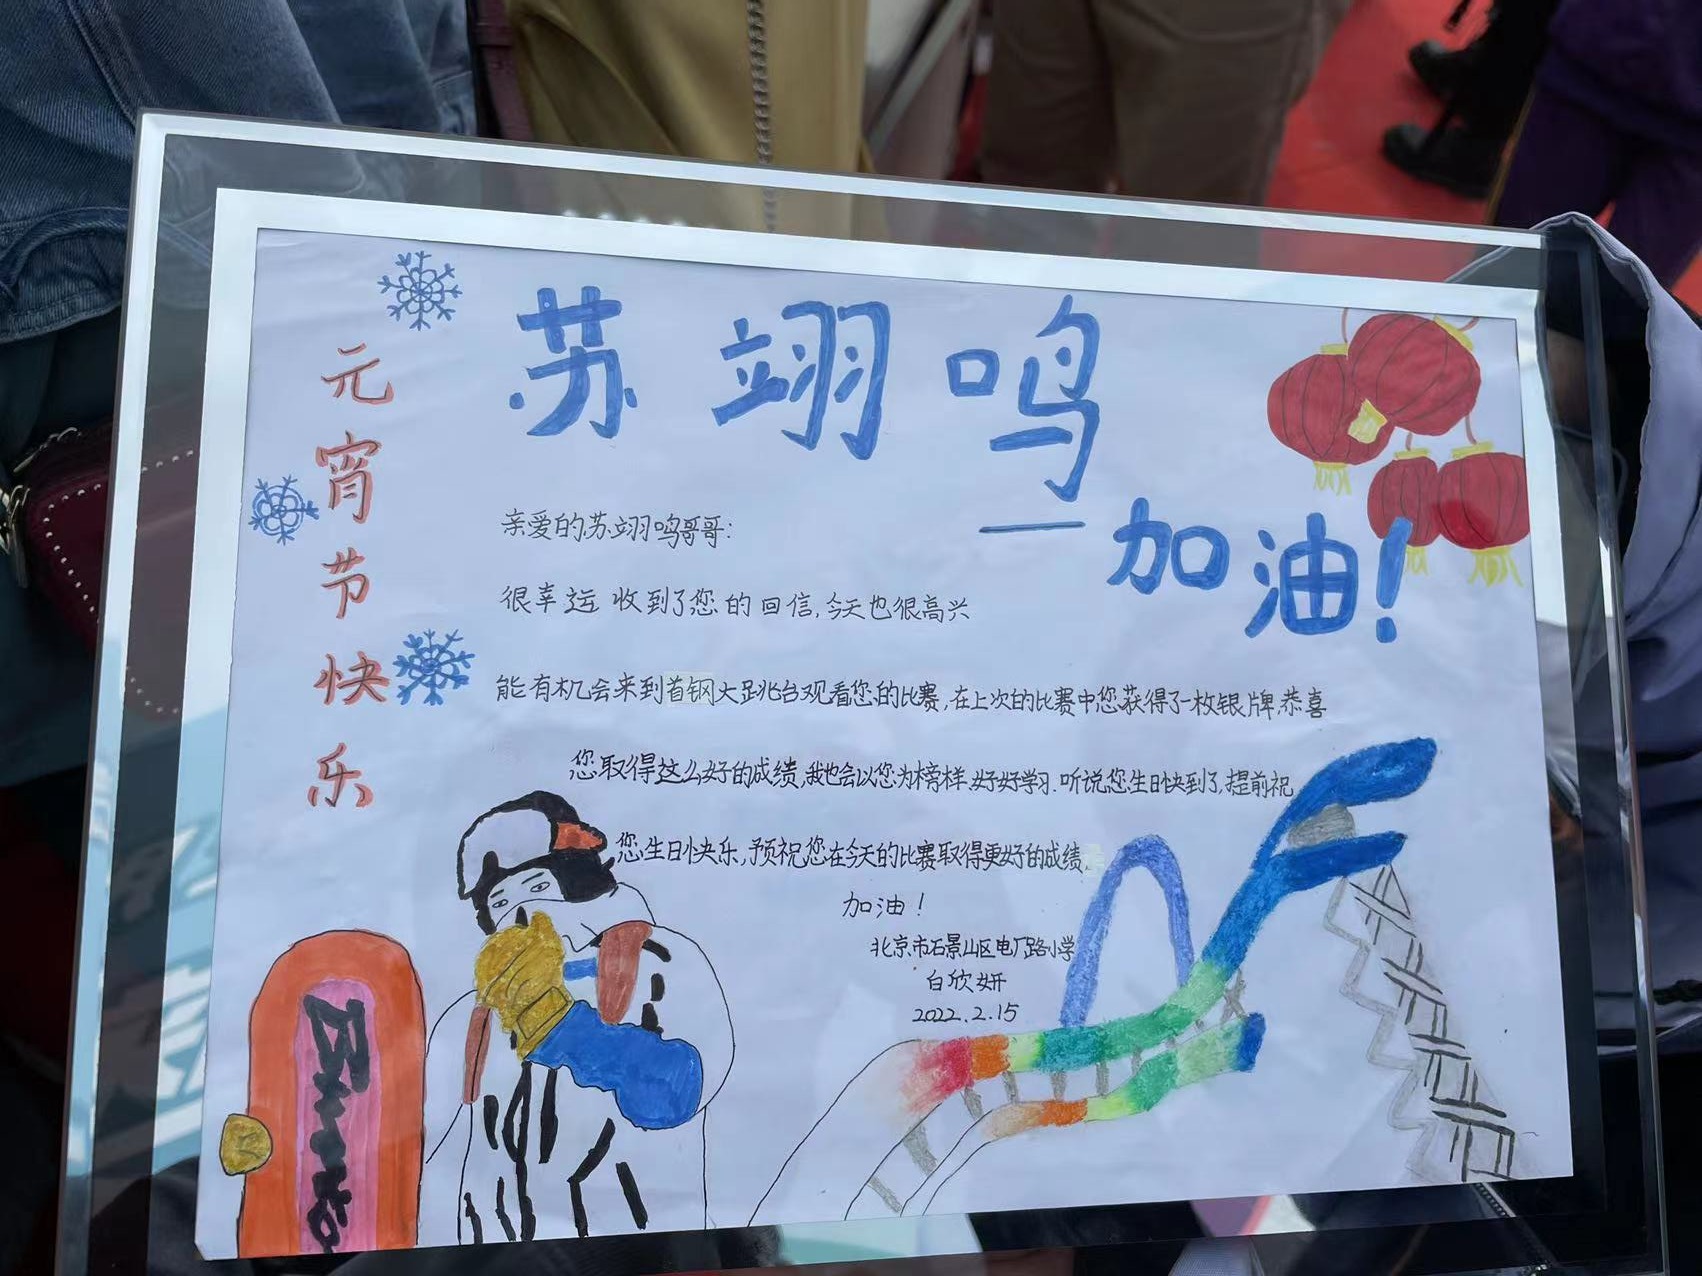 苏翊鸣
—加油!
元宵节快乐
亲爱的苏翊鸣哥哥:
很幸运 收到了您的回信,今天也很高兴
能有机会来到首钢大跳台观看您的比赛,在上次的比赛中您获得了一枚银牌,恭喜
您取得这么好的成绩,我也会以您为榜样,好好学习.听说您生日快到了,提前祝
您生日快乐,预祝您在今天的比赛取得更好的成绩,
加油!
北京市石景山区电厂路小学
白欣妍
2022.2.15